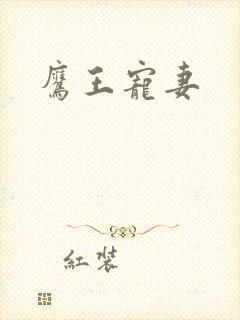 鷹王寵妻
紅裝